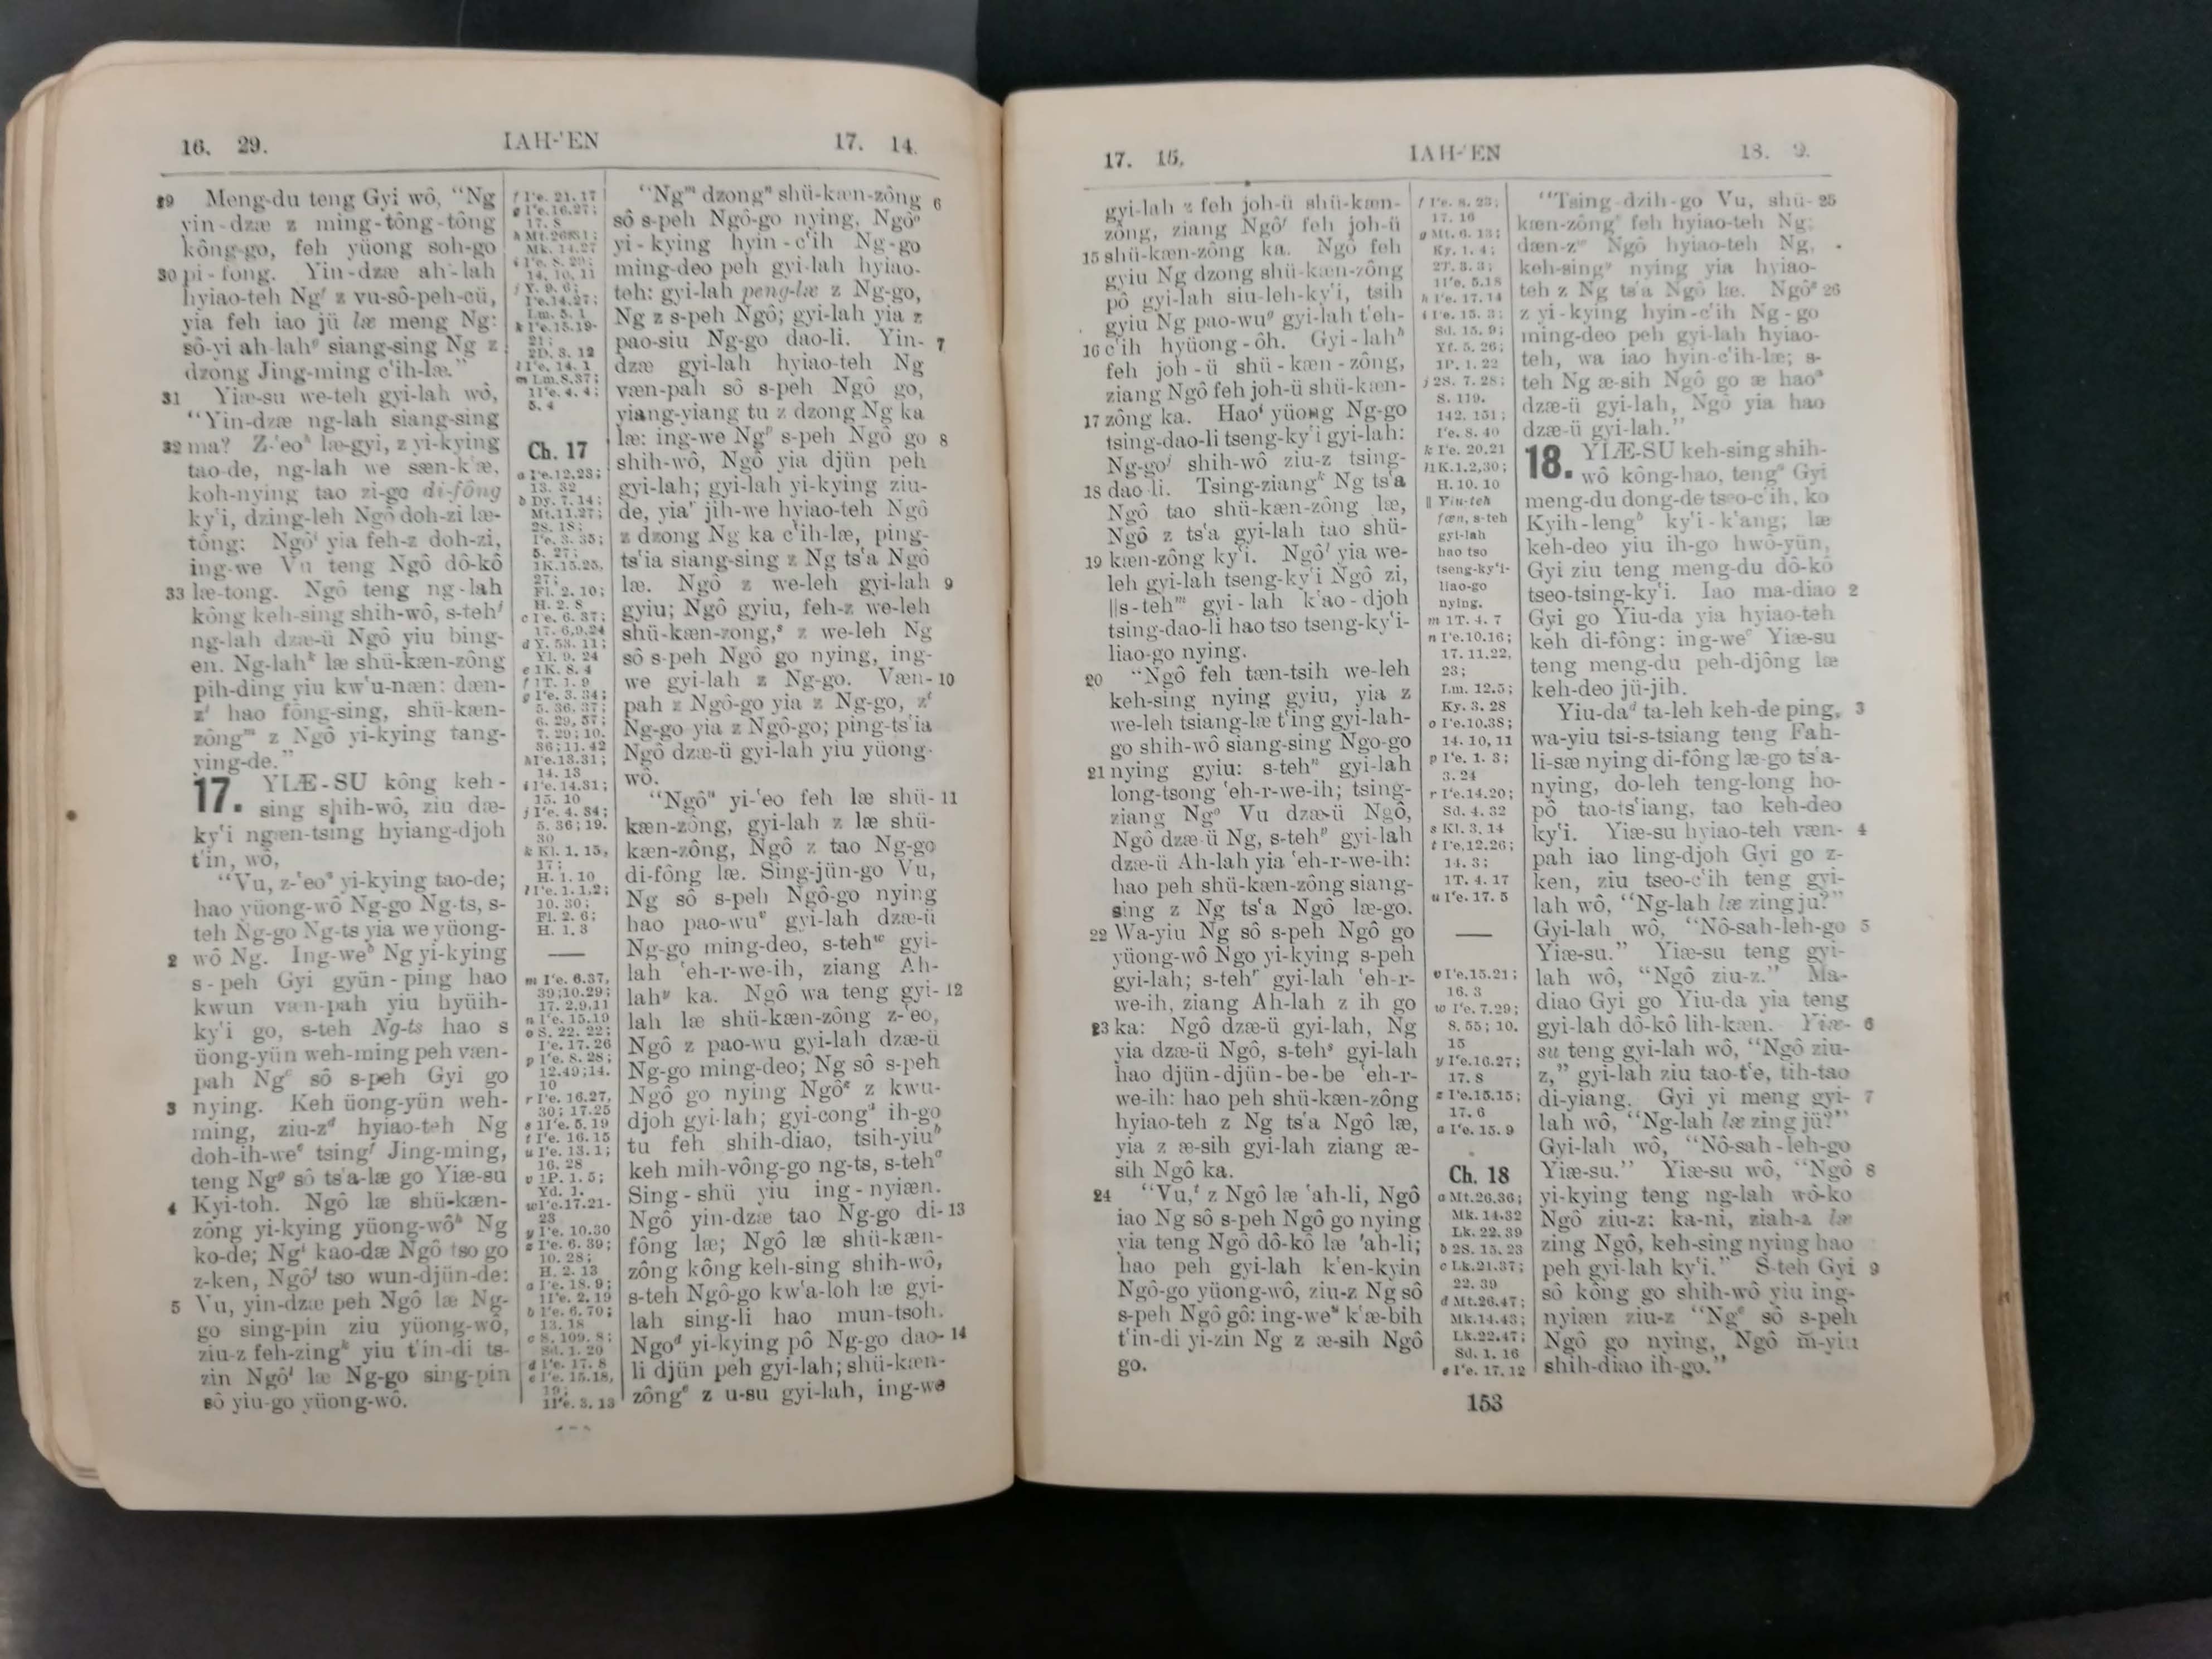 16. 29.
IAH-'EN
17. 14.
29 Meng-du teng Gyi wô, “Ng
yin-dzæ z ming-tông-tông
kông-go, feh yüong soh-go
30 pi-fong. Yin-dzæ ah-lah
hyiao-teh Ngᶠ z vu-sô-peh-cü,
yia feh iao jü læ meng Ng:
sô-yi ah-lahᵍ siang-sing Ng z
dzong Jing-ming c'ih-læ.”
31 Yiæ-su we-teh gyi-lah wô,
“Yin-dzæ ng-lah siang-sing
32 ma? Z-'eoʰ læ-gyi, z yi-kying
tao-de, ng-lah we sæn-k'æ,
koh-nying tao zi-go di-fông
ky'i, dzing-leh Ngô doh-zi læ-
tông: Ngôⁱ yia feh-z doh-zi,
ing-we Vu teng Ngô dô-kô
33 læ-tong. Ngô teng ng-lah
kông keh-sing shih-wô, s-tehʲ
ng-lah dzæ-ü Ngô yiu bing-
en. Ng-lahᵏ læ shü-kæn-zông
pih-ding yiu kw'u-næn: dæn-
zˡ hao fông-sing, shü-kæn-
zôngᵐ z Ngô yi-kying tang-
ying-de.”
17. YIÆ-SU kông keh-
sing shih-wô, ziu dæ-
ky'i ngæn-tsing hyiang-djoh
t'in, wô,
“Vu, z-'eoᵃ yi-kying tao-de;
hao yüong-wô Ng-go Ng-ts, s-
teh Ng-go Ng-ts yia we yüong-
2 wô Ng. Ing-weᵇ Ng yi-kying
s-peh Gyi gyün-ping hao
kwun væn-pah yiu hyüih-
ky'i go, s-teh Ng-ts hao s
üong-yün weh-ming peh væn-
pah Ngᶜ sô s-peh Gyi go
3 nying. Keh üong-yün weh-
ming, ziu-zᵈ hyiao-teh Ng
doh-ih-weᵉ tsingᶠ Jing-ming,
teng Ngᵍ sô ts'a-læ go Yiæ-su
4 Kyi-toh. Ngô læ shü-kæn-
zông yi-kying yüong-wôʰ Ng
ko-de; Ngⁱ kao-dæ Ngô tso go
z-ken, Ngôʲ tso wun-djün-de:
5 Vu, yin-dzæ peh Ngô læ Ng-
go sing-pin ziu yüong-wô,
ziu-z feh-zingᵏ yiu t'in-di ts-
zin Ngôˡ læ Ng-go sing-pin
sô yiu-go yüong-wô.
f I'e. 21. 17
g I'e. 16.27;
17. 8
h Mt. 26.31;
Mk. 14.27
i I'e. 8. 29;
14. 10, 11
j Y. 9. 6;
I'e.14.27;
Lm. 5. 1
k I'e.15.19-
21;
2D. 3. 12
l I'e. 14. 1
m Lm.8.37;
1I'e. 4. 4;
5. 4
Ch. 17
a I'e.12.23;
13. 32
b Dy. 7. 14;
Mt.11.27;
28. 18;
I'e. 3. 35;
5. 27;
1K.15.25,
27;
Fl. 2. 10;
H. 2. 8
c I'e. 6. 37;
17. 6,9,24
d Y. 53. 11;
Yl. 9. 24
e 1K. 8. 4
f 1T. 1. 9
g I'e. 3. 34;
5. 36, 37;
6. 29, 57;
7. 29; 10.
36; 11. 42
h I'e.13.31;
14. 13
i I'e. 14.31;
15. 10
j I'e. 4. 34;
5. 36; 19.
30
k Kl. 1. 15,
17;
H. 1. 10
l I'e. 1. 1,2;
10. 30;
Fl. 2. 6;
H. 1. 3
m I'e. 6.37,
39;10.29;
17. 2,9,11
n I'e. 15.19
o S. 22. 22;
I'e. 17.26
p I'e. 8. 28;
12.49;14.
10
r I'e. 16.27,
30; 17.25
s 1I'e. 5. 19
t I'e. 16. 15
u I'e. 13. 1;
16. 28
v 1P. 1. 5;
Yd. 1.
w I'e.17.21-
23
y I'e. 10.30
z I'e. 6. 39;
10. 28;
H. 2. 13
a I'e. 18. 9;
1I'e. 2. 19
b I'e. 6. 70;
13. 18
c S. 109. 8;
Sd. 1. 20
d I'e. 17. 8
e I'e. 15.18,
19;
1I'e. 3. 13
“Ngᵐ dzongⁿ shü-kæn-zông 6
sô s-peh Ngô-go nying, Ngôᵒ
yi-kying hyin-c'ih Ng-go
ming-deo peh gyi-lah hyiao-
teh: gyi-lah peng-læ z Ng-go,
Ng z s-peh Ngô; gyi-lah yia z
pao-siu Ng-go dao-li. Yin- 7
dzæ gyi-lah hyiao-teh Ng
væn-pah sô s-peh Ngô go,
yiang-yiang tu z dzong Ng ka
læ: ing-we Ngᵖ s-peh Ngô go 8
shih-wô, Ngô yia djün peh
gyi-lah; gyi-lah yi-kying ziu-
de, yiaʳ jih-we hyiao-teh Ngô
z dzong Ng ka c'ih-læ, ping-
ts'ia siang-sing z Ng ts'a Ngô
læ. Ngô z we-leh gyi-lah 9
gyiu; Ngô gyiu, feh-z we-leh
shü-kæn-zong,ˢ z we-leh Ng
sô s-peh Ngô go nying, ing-
we gyi-lah z Ng-go. Væn- 10
pah z Ngô-go yia z Ng-go, zᵗ
Ng-go yia z Ngô-go; ping-ts'ia
Ngô dzæ-ü gyi-lah yiu yüong-
wô.
“Ngôᵘ yi-'eo feh læ shü- 11
kæn-zông, gyi-lah z læ shü-
kæn-zông, Ngô z tao Ng-go
di-fông læ. Sing-jün-go Vu,
Ng sô s-peh Ngô-go nying
hao pao-wuᵛ gyi-lah dzæ-ü
Ng-go ming-deo, s-tehʷ gyi-
lah 'eh-r-we-ih, ziang Ah-
lahʸ ka. Ngô wa teng gyi- 12
lah læ shü-kæn-zông z-'eo,
Ngô z pao-wu gyi-lah dzæ-ü
Ng-go ming-deo; Ng sô s-peh
Ngô go nying Ngôᶻ z kwu-
djoh gyi-lah; gyi-congᵃ ih-go
tu feh shih-diao, tsih-yiuᵇ
keh mih-vông-go ng-ts, s-tehᶜ
Sing-shü yiu ing-nyiæn.
Ngô yin-dzæ tao Ng-go di- 13
fông læ; Ngô læ shü-kæn-
zông kông keh-sing shih-wô,
s-teh Ngô-go kw'a-loh læ gyi-
lah sing-li hao mun-tsoh.
Ngoᵈ yi-kying pô Ng-go dao- 14
li djün peh gyi-lah; shü-kæn-
zôngᵉ z u-su gyi-lah, ing-we
17. 15.
IAH-'EN
18. 9.
gyi-lah z feh joh-ü shü-kæn-
zông, ziang Ngôᶠ feh joh-ü
15 shü-kæn-zông ka. Ngô feh
gyiu Ng dzong shü-kæn-zông
pô gyi-lah siu-leh-ky'i, tsih
gyiu Ng pao-wuᵍ gyi-lah t'eh-
16 c'ih hyüong-ôh. Gyi-lahʰ
feh joh-ü shü-kæn-zông,
ziang Ngô feh joh-ü shü-kæn-
17 zông ka. Haoⁱ yüong Ng-go
tsing-dao-li tseng-ky'i gyi-lah:
Ng-goʲ shih-wô ziu-z tsing-
18 dao-li. Tsing-ziangᵏ Ng ts'a
Ngô tao shü-kæn-zông læ,
Ngô z ts'a gyi-lah tao shü-
19 kæn-zông ky'i. Ngôˡ yia we-
leh gyi-lah tseng-ky'i Ngô zi,
‖s-tehᵐ gyi-lah k'ao-djoh
tsing-dao-li hao tso tseng-ky'i-
liao-go nying.
20 “Ngô feh tæn-tsih we-leh
keh-sing nying gyiu, yia z
we-leh tsiang-læ t'ing gyi-lah-
go shih-wô siang-sing Ngo-go
21 nying gyiu: s-tehⁿ gyi-lah
long-tsong 'eh-r-we-ih; tsing-
ziang Ngᵒ Vu dzæ-ü Ngô,
Ngô dzæ-ü Ng, s-tehᵖ gyi-lah
dzæ-ü Ah-lah yia 'eh-r-we-ih:
hao peh shü-kæn-zông siang-
sing z Ng ts'a Ngô læ-go.
22 Wa-yiu Ng sô s-peh Ngô go
yüong-wô Ngo yi-kying s-peh
gyi-lah; s-tehʳ gyi-lah 'eh-r-
we-ih, ziang Ah-lah z ih go
23 ka: Ngô dzæ-ü gyi-lah, Ng
yia dzæ-ü Ngô, s-tehˢ gyi-lah
hao djün-djün-be-be 'eh-r-
we-ih: hao peh shü-kæn-zông
hyiao-teh z Ng ts'a Ngô læ,
yia z æ-sih gyi-lah ziang æ-
sih Ngô ka.
24 “Vu,ᵗ z Ngô læ 'ah-li, Ngô
iao Ng sô s-peh Ngô go nying
yia teng Ngô dô-kô læ 'ah-li;
hao peh gyi-lah k'en-kyin
Ngô-go yüong-wô, ziu-z Ng sô
s-peh Ngô gô: ing-weᵘ k'æ-bih
t'in-di yi-zin Ng z æ-sih Ngô
go.
f I'e. 8. 23;
17. 16
g Mt. 6. 13;
Ky. 1. 4;
2T. 3. 3;
1I'e. 5.18
h I'e. 17. 14
i I'e. 15. 3;
Sd. 15. 9;
Yf. 5. 26;
1P. 1. 22
j 2S. 7. 28;
S. 119.
142. 151;
I'e. 8. 40
k I'e. 20.21
l 1K.1.2,30;
H. 10. 10
‖ Yiu-teh
fæn, s-teh
gyi-lah
hao tso
tseng-ky'i-
liao-go
nying.
m 1T. 4. 7
n I'e.10.16;
17. 11.22,
23;
Lm. 12.5;
Ky. 3. 28
o I'e.10.38;
14. 10, 11
p I'e. 1. 3;
3. 24
r I'e.14.20;
Sd. 4. 32
s Kl. 3. 14
t I'e.12.26;
14. 3;
1T. 4. 17
u I'e. 17. 5
v I'e.15.21;
16. 3
w I'e. 7.29;
8. 55; 10.
15
y I'e.16.27;
17. 8
z I'e.15.15;
17. 6
a I'e. 15. 9
Ch. 18
a Mt.26.36;
Mk. 14.32
Lk. 22. 39
b 2S. 15. 23
c Lk.21.37;
22. 39
d Mt.26.47;
Mk.14.43;
Lk.22.47;
Sd. 1. 16
e I'e. 17. 12
“Tsing-dzih-go Vu, shü- 25
kæn-zôngᵛ feh hyiao-teh Ng;
dæn-zʷ Ngô hyiao-teh Ng,
keh-singʸ nying yia hyiao-
teh z Ng ts'a Ngô læ. Ngôᶻ 26
z yi-kying hyin-c'ih Ng-go
ming-deo peh gyi-lah hyiao-
teh, wa iao hyin-c'ih-læ; s-
teh Ng æ-sih Ngô go æ haoᵃ
dzæ-ü gyi-lah, Ngô yia hao
dzæ-ü gyi-lah.”
18. YIÆ-SU keh-sing shih-
wô kông-hao, tengᵃ Gyi
meng-du dong-de tseo-c'ih, ko
Kyih-lengᵇ ky'i-k'ang; læ
keh-deo yiu ih-go hwô-yün,
Gyi ziu teng meng-du dô-kô
tseo-tsing-ky'i. Iao ma-diao 2
Gyi go Yiu-da yia hyiao-teh
keh di-fông: ing-weᶜ Yiæ-su
teng meng-du peh-djông læ
keh-deo jü-jih.
Yiu-daᵈ ta-leh keh-de ping, 3
wa-yiu tsi-s-tsiang teng Fah-
li-sæ nying di-fông læ-go ts'a-
nying, do-leh teng-long ho-
pô tao-ts'iang, tao keh-deo
ky'i. Yiæ-su hyiao-teh væn- 4
pah iao ling-djoh Gyi go z-
ken, ziu tseo-c'ih teng gyi-
lah wô, “Ng-lah læ zing jü?”
Gyi-lah wô, “Nô-sah-leh-go 5
Yiæ-su.” Yiæ-su teng gyi-
lah wô, “Ngô ziu-z.” Ma-
diao Gyi go Yiu-da yia teng
gyi-lah dô-kô lih-kæn. Yiæ- 6
su teng gyi-lah wô, “Ngô ziu-
z,” gyi-lah ziu tao-t'e, tih-tao
di-yiang. Gyi yi meng gyi- 7
lah wô, “Ng-lah læ zing jü?”
Gyi-lah wô, “Nô-sah-leh-go
Yiæ-su.” Yiæ-su wô, “Ngô 8
yi-kying teng ng-lah wô-ko
Ngô ziu-z: ka-ni, ziah-z læ
zing Ngô, keh-sing nying hao
peh gyi-lah ky'i.” S-teh Gyi 9
sô kông go shih-wô yiu ing-
nyiæn ziu-z “Ngᵉ sô s-peh
Ngô go nying, Ngô m̄-yiu
shih-diao ih-go.”
153